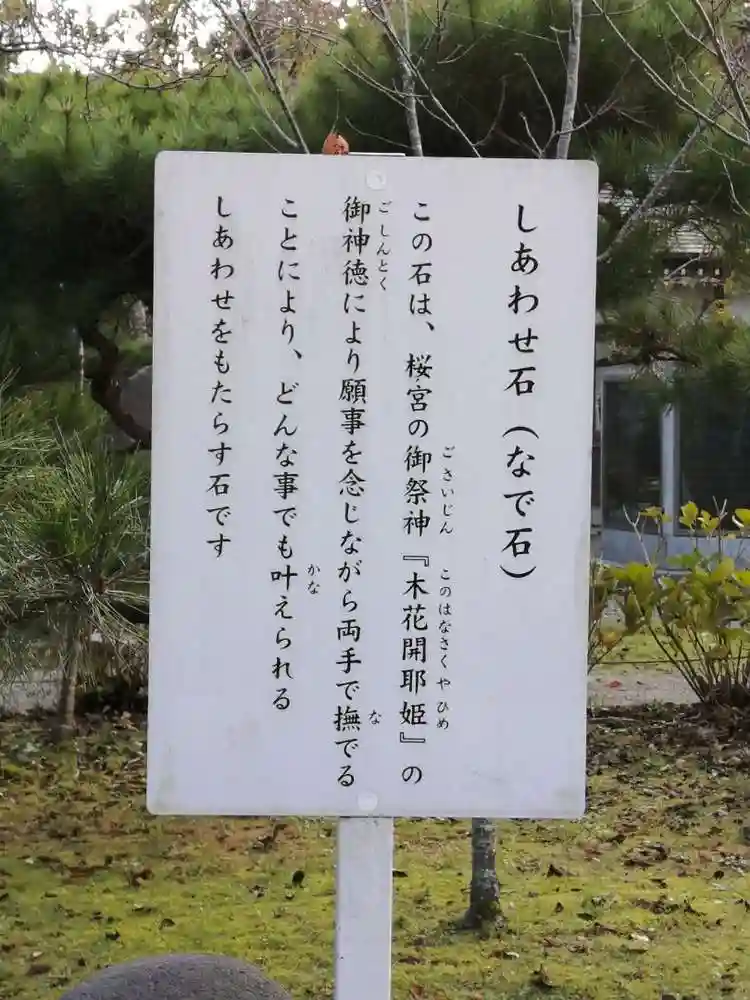 しあわせ石（なで石）
この石は、桜宮の御祭神『木花開耶姫』の
ごさいじん
このはなさくやひめ
御神徳により願事を念じながら両手で撫でる
ごしんとく
な
ことにより、どんな事でも叶えられる
かな
しあわせをもたらす石です